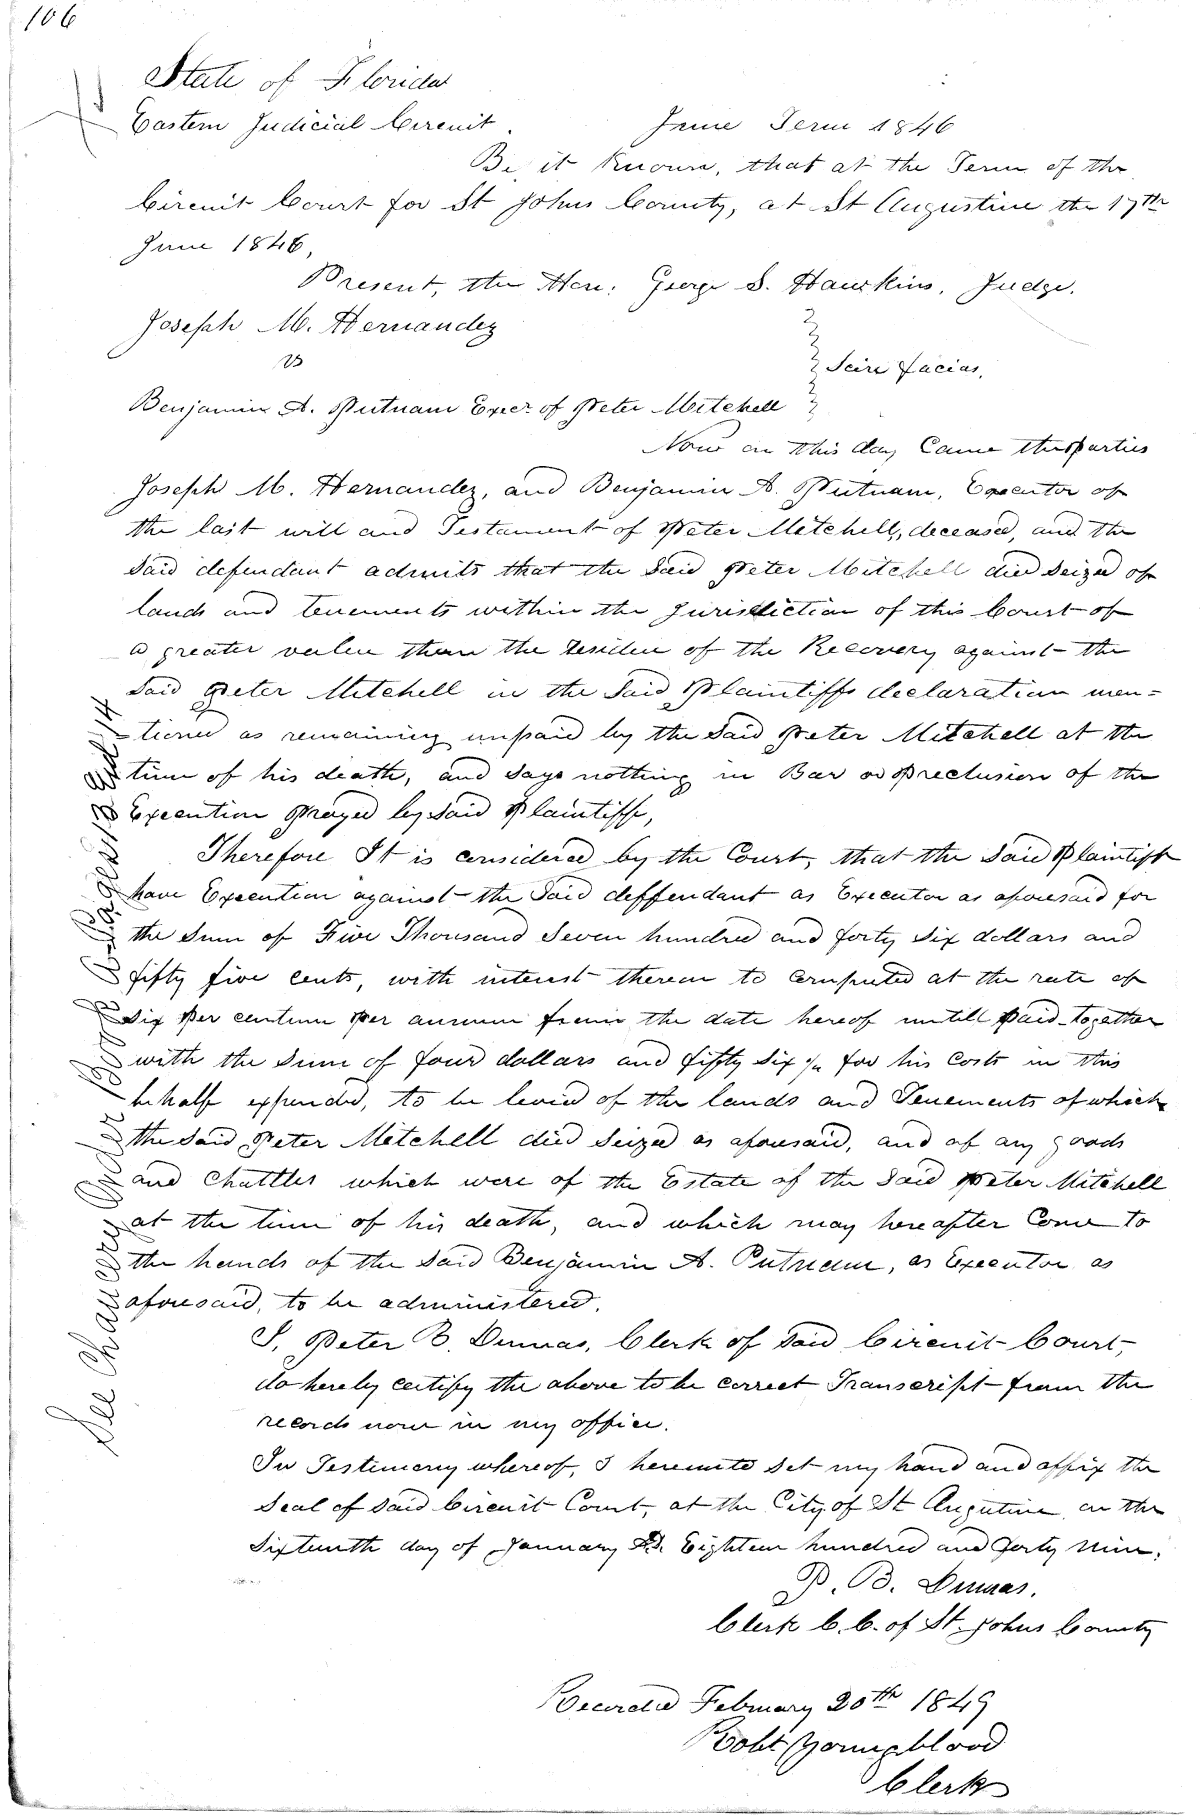 106
State of Florida
Eastern Judicial Circuit. June Term 1846
Be it Known, that at the Term of the
Circuit Court for St Johns County, at St Augustine the 17th
June 1846,
Present, the Hon: George S. Hawkins, Judge.
Joseph M. Hernandez
vs
Scire facias,
Benjamin A. Putnam Execr of Peter Mitchell
Now on this day Came the parties
Joseph M. Hernandez, and Benjamin A. Putnam, Executor of
the last will and Testament of Peter Mitchell, deceased, and the
Said defendant admits that the Said Peter Mitchell died Seized of
lands and tenements within the Jurisdiction of this Court of
a greater value than the residue of the Recovery against the
Said Peter Mitchell in the Said Plaintiffs declaration men=
tioned as remaining unpaid by the Said Peter Mitchell at the
time of his death, and Says nothing in Bar or Preclusion of the
Execution Prayed by Said Plaintiff,
Therefore It is considered by the Court, that the Said Plaintiff
have Execution against the Said deffendant as Executor as aforesaid for
the Sum of Five Thousand Seven hundred and forty Six dollars and
fifty five cents, with interest thereon to computed at the rate of
Six Per centum Per annum from the date hereof untill Paid together
with the Sum of four dollars and fifty Six % for his Costs in this
behalf expended, to be levied of the lands and Tenements of which
the Said Peter Mitchell died Seized as aforesaid, and of any goods
and Chattles which were of the Estate of the Said Peter Mitchell
at the time of his death, and which may hereafter Come to
the hands of the Said Benjamin A. Putnam, as Executor as
aforesaid, to be administered.
I, Peter B. Dumas, Clerk of Said Circuit Court,
do hereby certify the above to be correct Transcript from the
records now in my office.
In Testimony whereof, I hereunto Set my hand and affix the
Seal of Said Circuit Court, at the City of St Augutine on the
Sixteenth day of January A.D. Eighteen hundred and forty nine.
P. B. Dumas.
Clerk C. C. of St. Johns County
Recorded February 20th 1849
Robt Youngblood
Clerk
See Chancery Order Book Pages 13 and 14